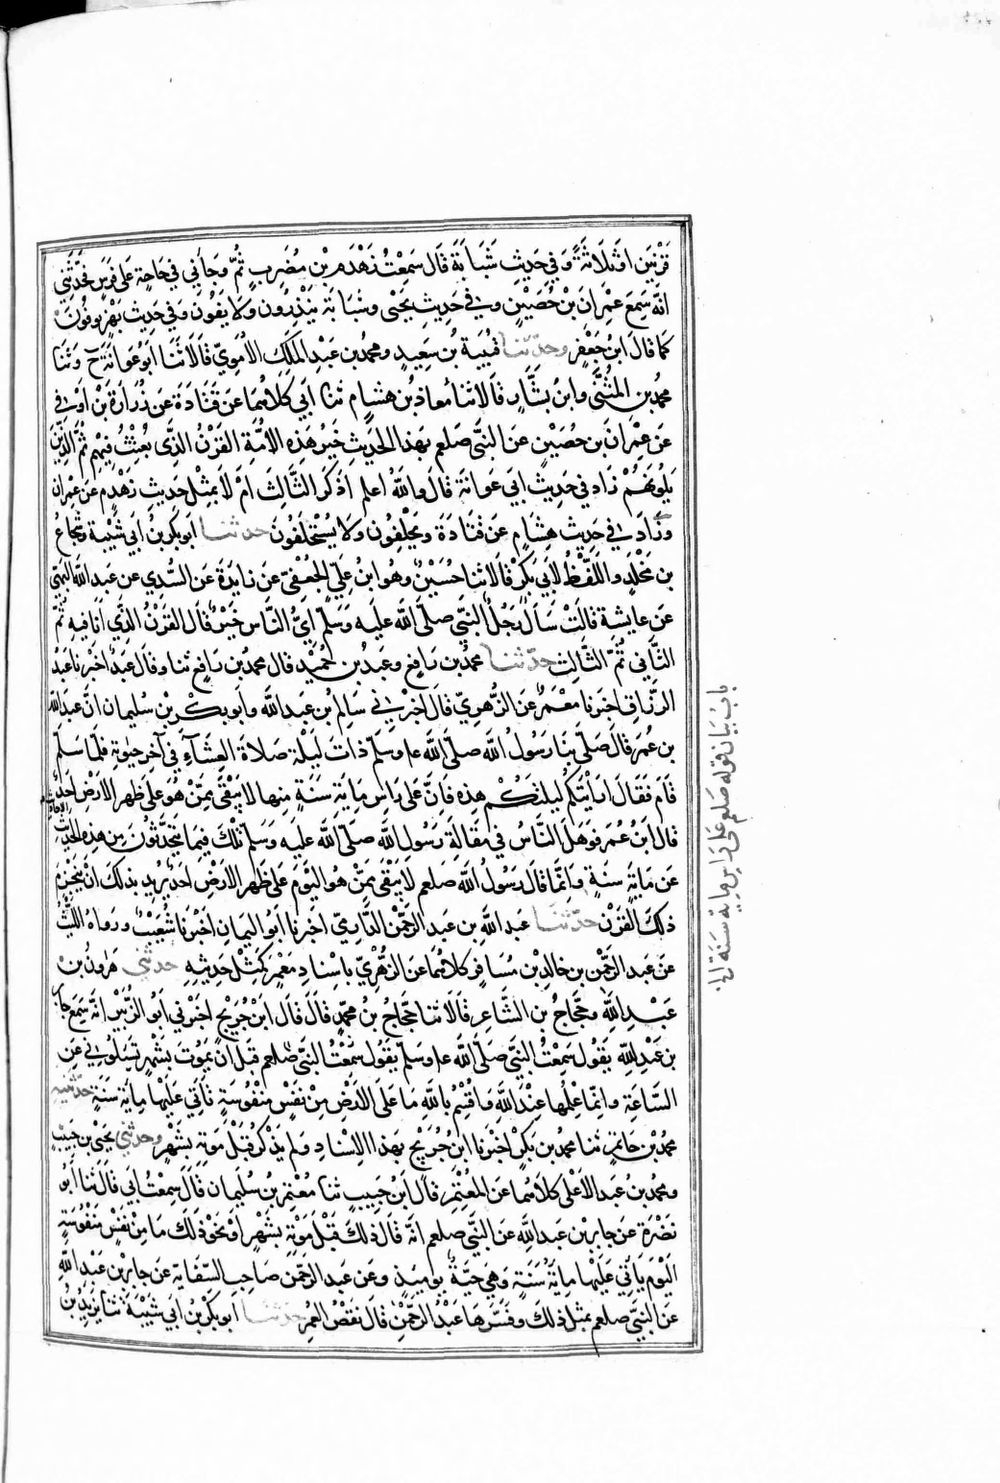 قرنين او ثلاثة وفي حديث شبابة قال سمعت زهدم بن مضرب ثم وجاءني في حاجة على فرس فحدثني
انه سمع عمران بن حصين وفي حديث يحيى وشبابة ينذرون ولا يفون وفي حديث بهز يوفون
كما قال ابن جعفر وحدثنا قتيبة بن سعيد ومحمد بن عبد الملك الاموي قالا نا ابو عوانة ح وثنا
محمد بن المثنى وابن بشار قالا ثنا معاذ بن هشام ثنا ابي كلاهما عن قتادة عن زرارة بن اوفى
عن عمران بن حصين عن النبي صلعم بهذا الحديث خير هذه الامة القرن الذي بعثت فيهم ثم الذين
يلونهم زاد في حديث ابي عوانة قال والله اعلم اذكر الثالث ام لا بمثل حديث زهدم عن عمران
وزاد في حديث هشام عن قتادة ويحلفون ولا يستحلفون حدثنا ابو بكر بن ابي شيبة وشجاع
بن مخلد واللفظ لابي بكر قالا ثنا حسين وهو ابن علي الجعفي عن زايدة عن السدي عن عبد الله البهي
عن عايشة قالت سال رجل النبي صلى الله عليه وسلم اي الناس خير قال القرن الذي انا فيه ثم
الثاني ثم الثالث حدثنا محمد بن رافع وعبد بن حميد قال محمد بن رافع ثنا وقال عبد اخبرنا عبد
الرزاق اخبرنا معمر عن الزهري قال اخبرني سالم بن عبد الله وابو بكر بن سليمان ان عبد الله
بن عمر قال صلى بنا رسول الله صلى الله عله وسلم ذات ليلة صلاة العشاء في آخر حيوته فلما سلم
قام فقال ارايتكم ليلتكم هذه فان على راس ماية سنة منها لا يبقى ممن هو على ظهر الارض احد
قال ابن عمر فوهل الناس في مقالة رسول الله صلى الله عليه وسلم تلك فيما يتحدثون من هذه الاحاديث
عن ماية سنة وانما قال رسول الله صلعم لا يبقى ممن هو اليوم على ظهر الارض احد يريد بذلك ان ينخرم
ذلك القرن حدثنا عبد الله بن عبد الرحمن الدارمي اخبرنا ابو اليمان اخبرنا شعيب ورواه الليث
عن عبد الرحمن بن خالد بن مسافر كلاهما عن الزهري باسناد معمر كمثل حديثه حدثني هارون بن
عبد الله وحجاج بن الشاعر قالا ثنا حجاج بن محمد قال قال ابن جريج اخبرني ابو الزبير انه سمع جابر
بن عبد الله يقول سمعت النبي صلى الله عله وسلم يقول سمعت النبي صلعم قبل ان يموت بشهر تسئلوني عن
الساعة وانما علمها عند الله واقسم بالله ما على الارض من نفس منفوسة تاتي عليها ماية سنة حدثنيه
محمد بن حاتم ثنا محمد بن بكر اخبرنا ابن جريج بهذا الاسناد ولم يذكر قبل موته بشهر وحدثني يحيى بن حبيب
ومحمد بن عبد الاعلى كلاهما عن المعتمر قال ابن حبيب ثنا معتمر بن سليمان قال سمعت ابي قال ثنا ابو
نضرة عن جابر بن عبد الله عن النبي صلعم انه قال ذلك قبل موته بشهر او نحو ذلك ما من نفس منفوسة
اليوم ياتي عليها ماية سنة وهي حية يوميذ وعن عبد الرحمن صاحب السقاية عن جابر بن عبد الله
عن النبي صلعم بمثل ذلك وفسرها عبد الرحمن قال نقص العمر حدثنا ابو بكر بن ابي شيبة ثنا يزيد بن
باب بيان قوله صلعم على راس ماية سنة